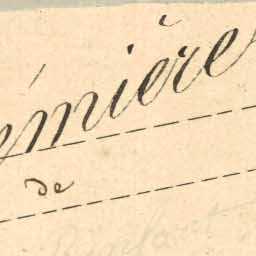 émière
de